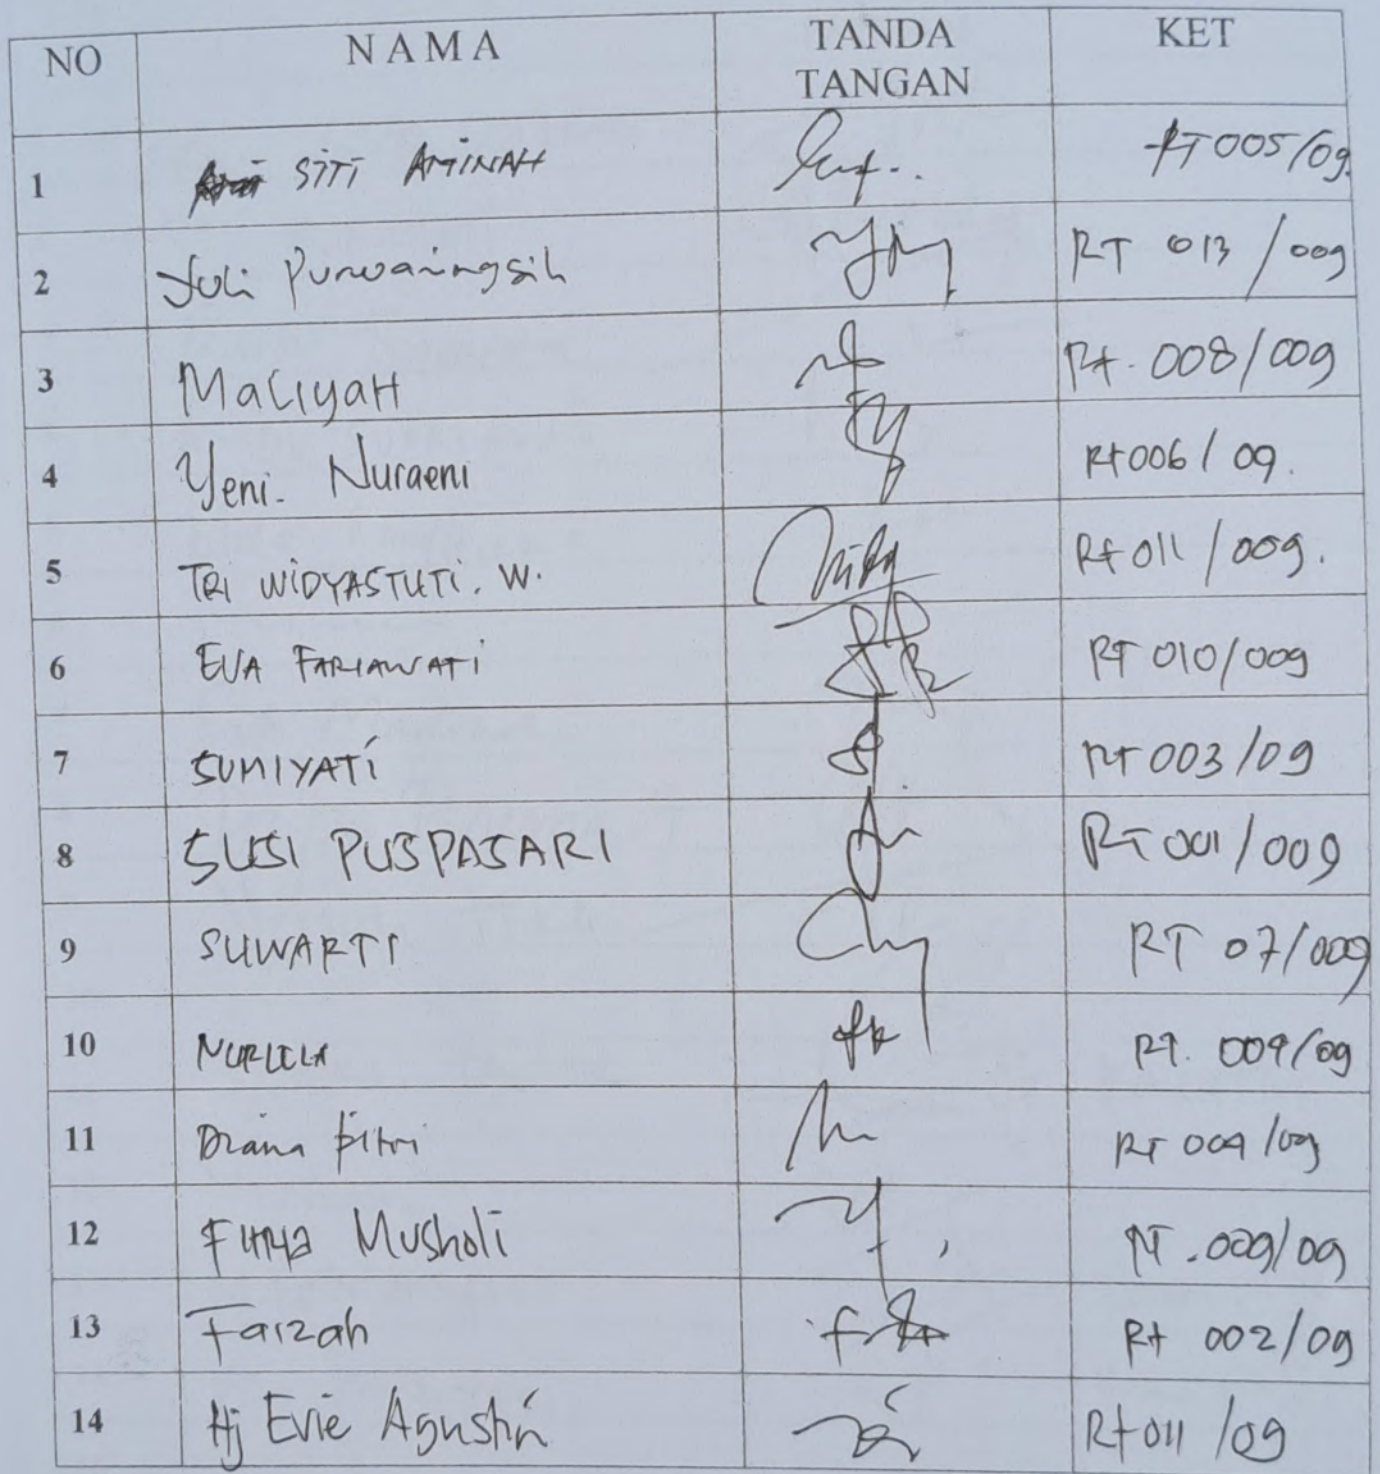 NO NAMA TANDA TANGAN KET
1 SITI AMINAH RT 005/09.
2 Yuli Purwaningsih RT 013 / 009
3 MaliyaH Rt. 008/009
4 Yeni. Nuraeni Rt 006 / 09.
5 TRI WIDYASTUTI. W. Rt 011 / 009.
6 EVA FARIAWATI RT 010/009
7 SUMIYATI RT 003/09
8 SUSI PUSPASARI RT 001/009
9 SUWARTI RT 07/009
10 NURLELA RT. 009/09
11 Diana Fitri RT 004/09
12 Musholi RT. 009/09
13 Faizah Rt 002/09
14 Hj Evie Agustin Rt 011 /09